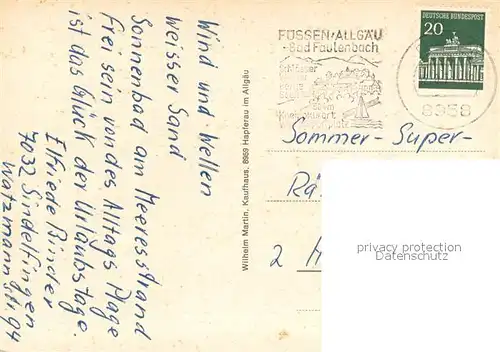 Wind und Wellen
Weisser Sand
Sonnenbad am Meeresstrand
Frei sein von des Alltags Plage
ist das Glück der Urlaubstage.
Elfriede Binder
7032 Sindelfingen
Watzmannstr. 94
Wilhelm Martin, Kaufhaus, 8959 Hopferau im Allgäu
FÜSSEN/ALLGÄU
-Bad Faulenbach
Kneippkurort
DEUTSCHE BUNDESPOST
20
8958
Sommer-Super-
Rä
2 H
privacy protection
Datenschutz